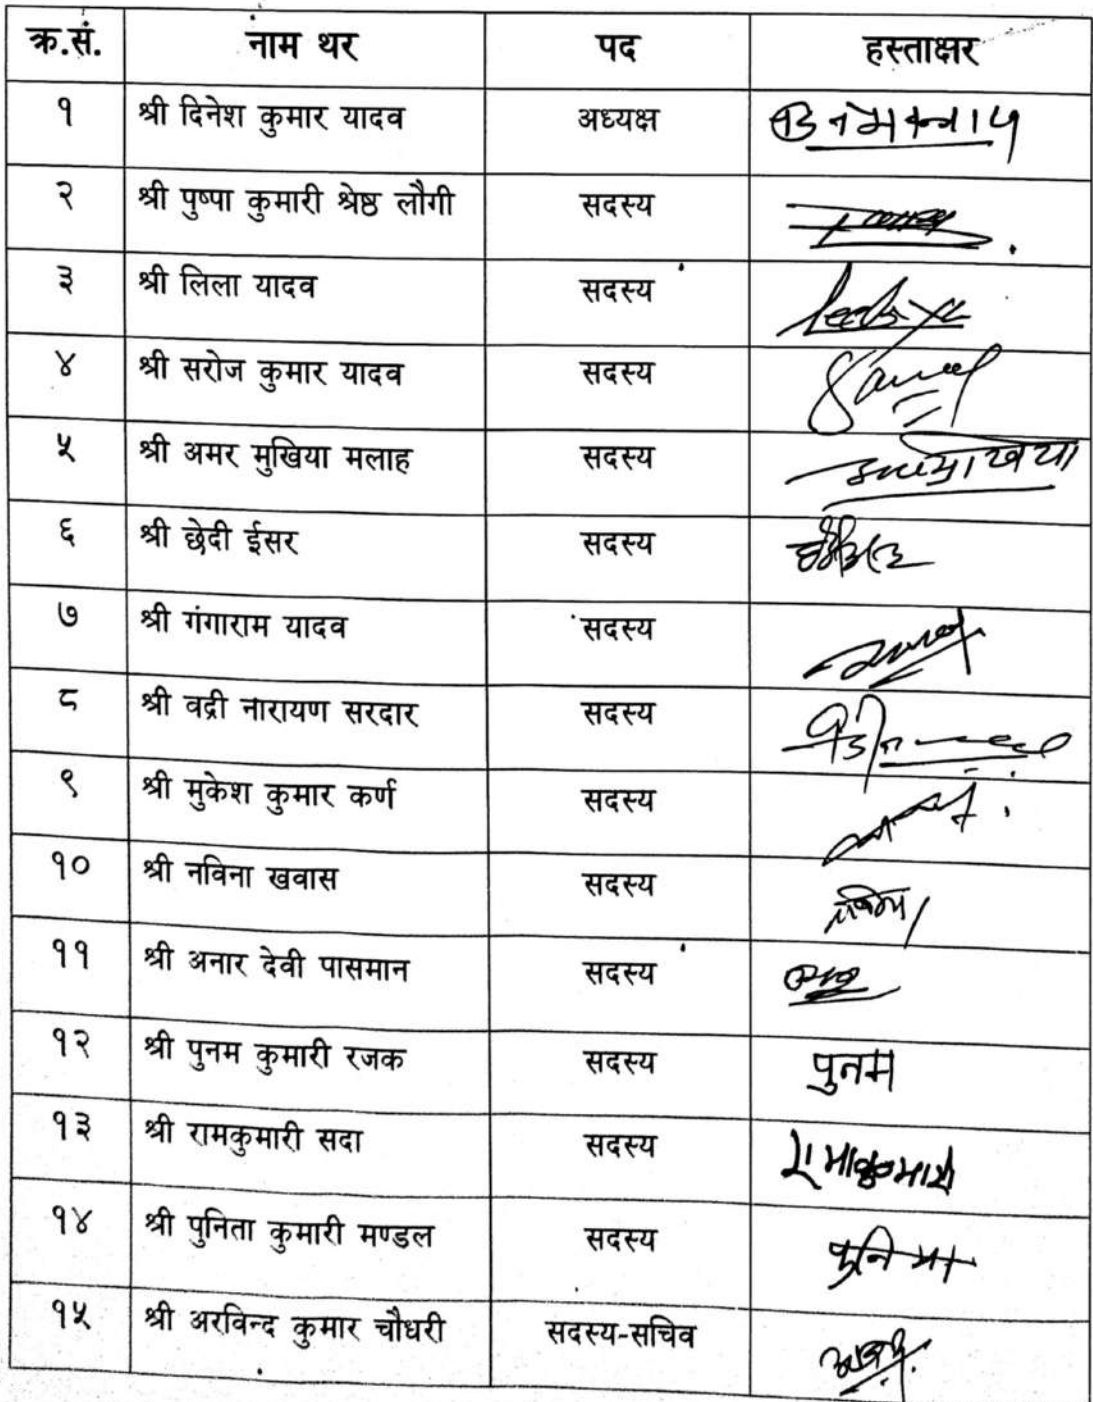 क्र.सं. नाम थर पद हस्ताक्षर
१ श्री दिनेश कुमार यादव अध्यक्ष
२ श्री पुष्पा कुमारी श्रेष्ठ लौगी सदस्य
३ श्री लिला यादव सदस्य
४ श्री सरोज कुमार यादव सदस्य
५ श्री अमर मुखिया मलाह सदस्य
६ श्री छेदी ईसर सदस्य
७ श्री गंगाराम यादव सदस्य
८ श्री वद्री नारायण सरदार सदस्य
९ श्री मुकेश कुमार कर्ण सदस्य
१० श्री नविना खवास सदस्य
११ श्री अनार देवी पासमान सदस्य
१२ श्री पुनम कुमारी रजक सदस्य पुनम
१३ श्री रामकुमारी सदा सदस्य
१४ श्री पुनिता कुमारी मण्डल सदस्य
१५ श्री अरविन्द कुमार चौधरी सदस्य-सचिव